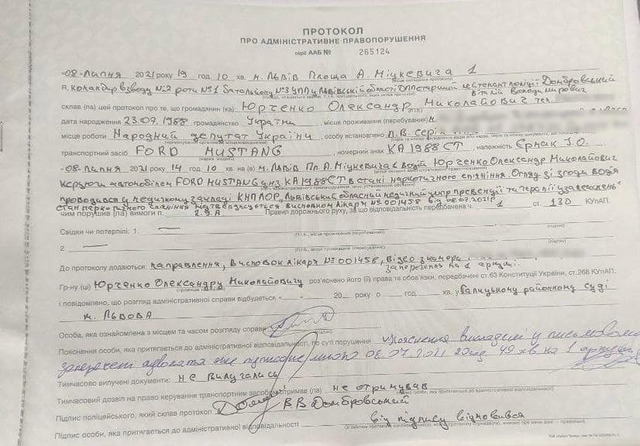 ПРОТОКОЛ
ПРО АДМІНІСТРАТИВНЕ ПРАВОПОРУШЕННЯ
серія ААБ № 265124
«08» липня 2021 року 19 год. 10 хв. м. Львів Площа А. Міцкевича 1
Я, командир взводу №2 роти №1 батальйону №3 УПП у Львівській області ДПП старший лейтенант поліції Домбровський
Віталій Володимирович
склав (ла) цей протокол про те, що громадянин (ка) Юрченко Олександр Миколайович тел.
дата народження 23.09.1988 громадянство України місце проживання (перебування)
місце роботи Народний депутат України особу встановлено п.в. серія
транспортний засіб FORD MUSTANG номерний знак КА1988СТ належить Єрмак І.О.
«08» липня 2021 14 год. 10 хв. на (в) м. Львів Пл А. Міцкевича водій Юрченко Олександр Миколайович
керував автомобілем FORD MUSTANG днз КА1988СТ в стані наркотичного сп'яніння. Огляд зі згоди водія
проводився у медичному закладі КНП ЛОР "Львівський обласний медичний центр превенції та терапії узалежнень"
Стан наркотичного сп'яніння підтверджується висновком лікаря №001458 від 08.07.2021р.
чим порушив (ла) вимоги п. 2.9.А Правил дорожнього руху, за що відповідальність передбачена ч. 1 ст. 130 КУпАП.
Свідки чи потерпілі: 1.
2.
До протоколу додаються: направлення, висновок лікаря №001458, відео з камери,
заперечення на 1 аркуші
Гр-ну (ці) Юрченко Олександру Миколайовичу роз'яснено його (її) права та обов'язки, передбачені ст.63 Конституції України, ст.268 КУпАП,
і повідомлено, що розгляд адміністративної справи відбудеться - - 20 року о - год. - хв. у Галицькому районному суді
м. Львова
Особа, яка ознайомлена з місцем та часом розгляду справи
Пояснення особи, яка притягається до адміністративної відповідальності, по суті порушення пояснення викладені у письмовому
запереченні адвоката яке підписане мною 08.07.2021 20 год 49 хв на 1 аркуші
Тимчасово вилучені документи: не вилучались
Тимчасовий дозвіл на право керування транспортним засобом отримав (ла) не отримував
Підпис поліцейського, який склав протокол В.В Домбровський
Підпис особи, яка притягається до адміністративної відповідальності від підпису відмовився